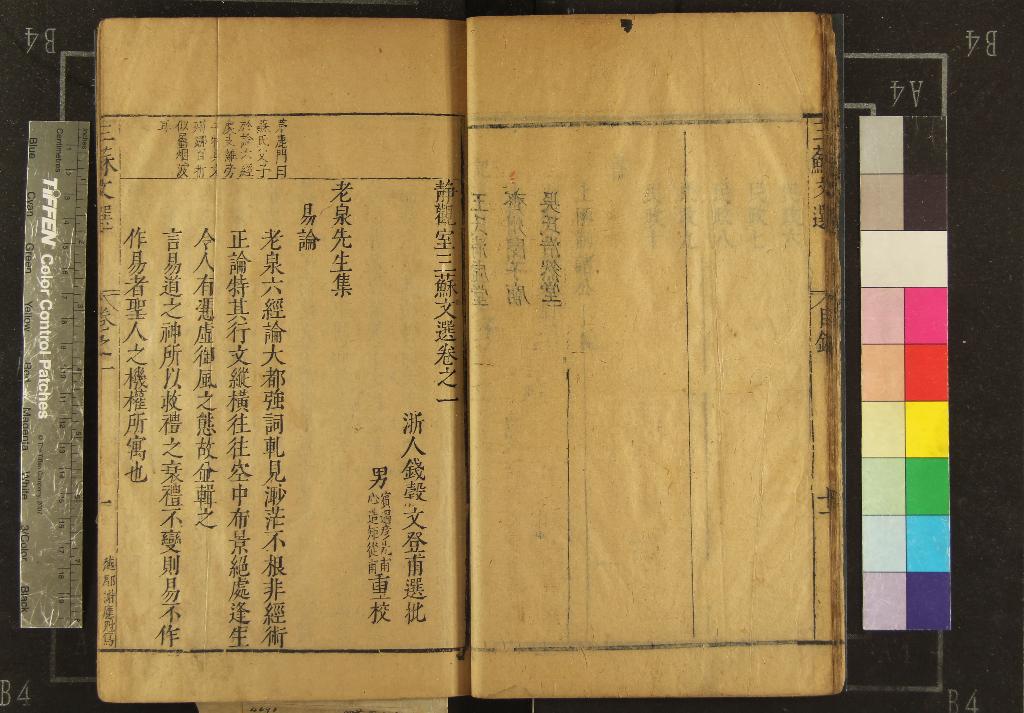 三蘇文選
目錄
十二
靜觀室三蘇文選卷之一
浙人錢穀文登甫選批
男
重校
老泉先生集
易論
老泉六經論大都強詞軋見渺茫不根非經術
正論特其行文縱橫往往空中布景絕處逢生
令人有憑虛御風之態故並輯之
言易道之神所以救禮之衰禮不變則易不作
作易者聖人之機權所寓也
茅鹿門曰
蘇氏父子
於論六經
處大都旁
似蜃烟波
耳
三蘇文選
卷之一
一
B4
A4
TIFFEN Color Control Patches
Blue
Cyan
Green
Yellow
Red
Magenta
White
3/Color
Black
Centimetres